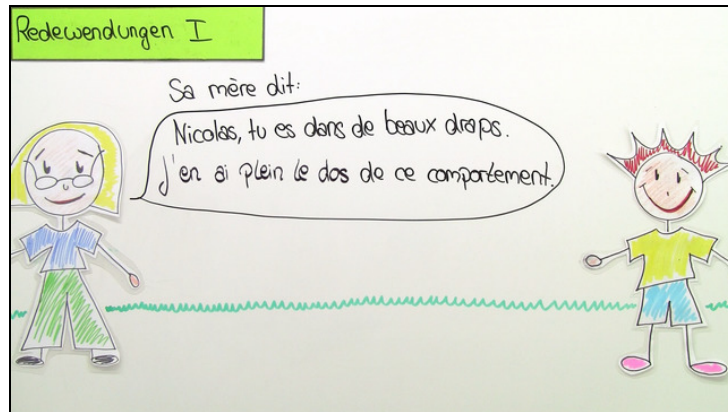 Redewendungen I
Sa mère dit:
Nicolas, tu es dans de beaux draps.
J'en ai plein le dos de ce comportement.